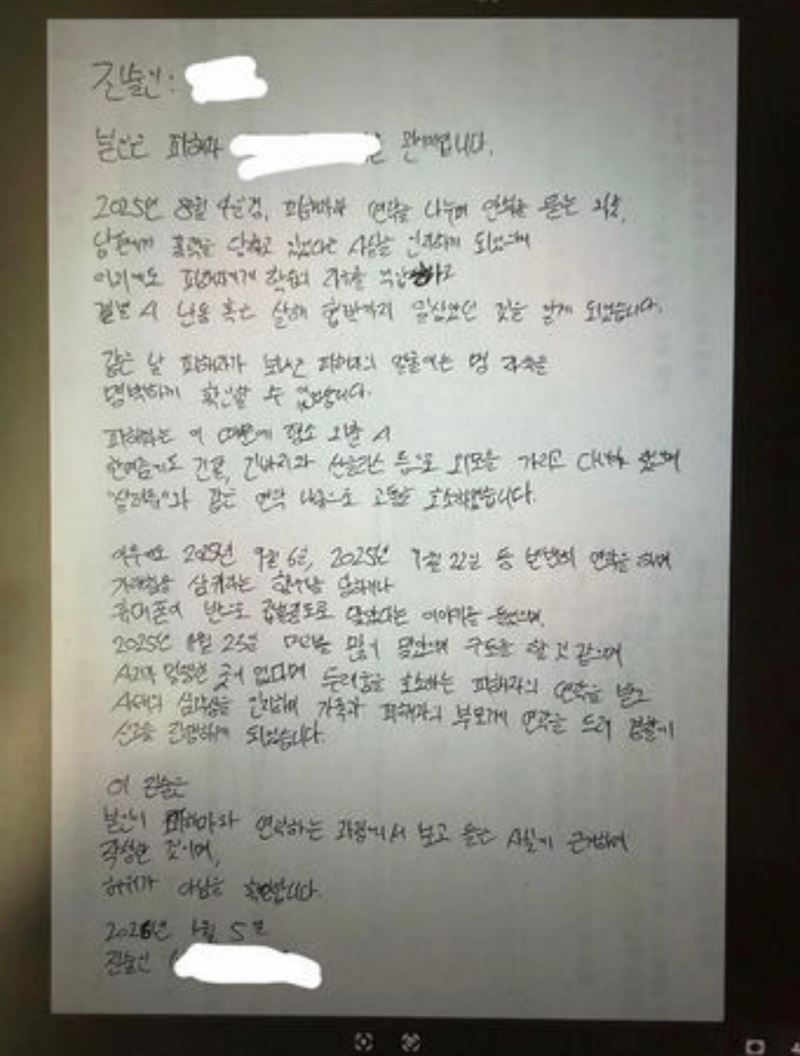 진술인:
본인은 피해자 관계입니다.
2025년 8월 4일경, 피해자와 연락을 나누며 안부를 묻는 과정,
남편에게 폭력을 당하고 있었다는 사실을 인지하게 되었으며
이외에도 피해자에게
결별 시 혹은 살해 협박까지 일삼았던 것을 알게 되었습니다.
같은 날 피해자가 보내온 피해자의 얼굴에는 멍 자국을
명백하게 확인할 수 있었습니다.
피해자는 이 때문에 평소 외출 시
한여름에도 긴팔, 긴바지와 선글라스 등으로 외모를 가리고 다녀야 했으며
"살려줘"와 같은 연락 내용으로 고통을 호소하였습니다.
이후에도 2025년 9월 6일, 2025년 22일 등 연락을 하며
휴대폰이 반으로 이야기를 들었으며,
2025년 25일 많이 맞았으며 구토를 할 것 같으며
멀쩡한 곳이 없다며 두려움을 호소하는 피해자의 연락을 받고
사태의 심각성을 인지하여 가족과 피해자의 부모에게 연락을 드려 경찰에
신고를 진행하게 되었습니다.
이 진술은
본인이 피해자와 연락하는 과정에서 보고 들은 사실에 근거하여
작성한 것이며,
허위가 아님을 확인합니다.
2026년 1월 5일
진술인